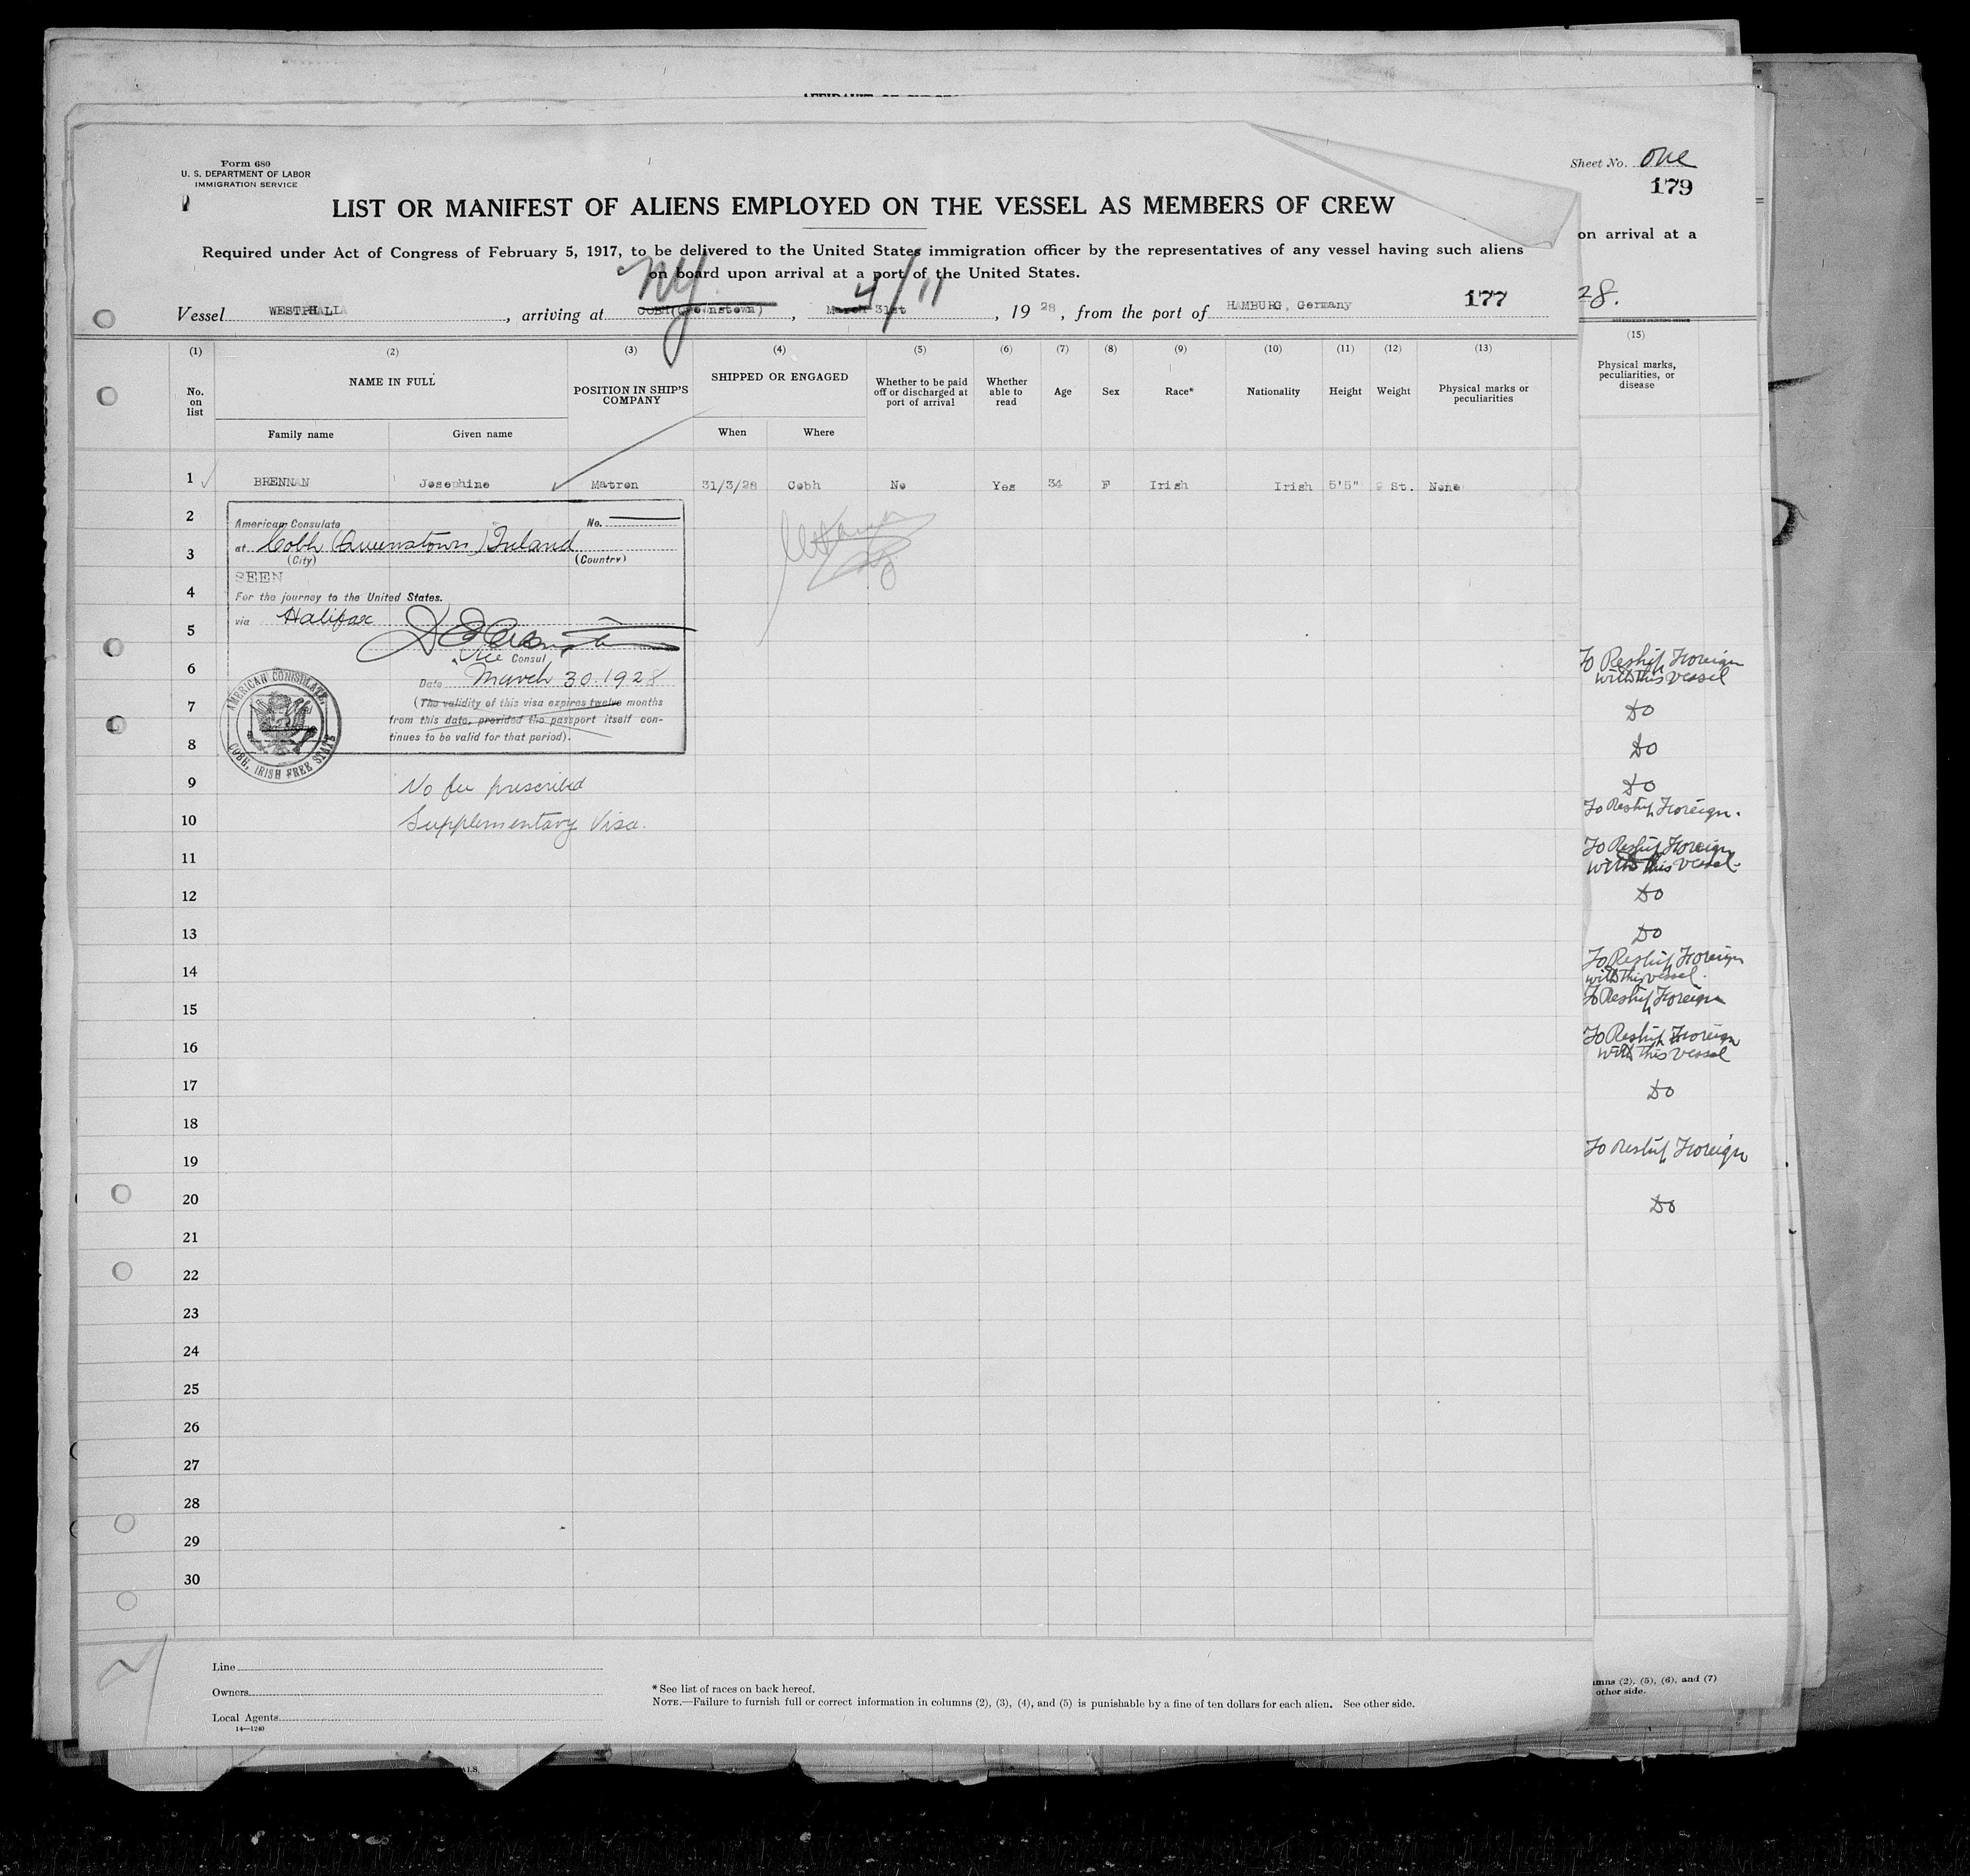 Form 680
U. S. DEPARTMENT OF LABOR
IMMIGRATION SERVICE
Sheet No. One
179
LIST OR MANIFEST OF ALIENS EMPLOYED ON THE VESSEL AS MEMBERS OF CREW
Required under Act of Congress of February 5, 1917, to be delivered to the United States immigration officer by the representatives of any vessel having such aliens
on board upon arrival at a port of the United States.
on arrival at a
NY 4/11
Vessel WESTPHALIA, arriving at COBH (Queenstown), March 31st, 1928, from the port of HAMBURG, Germany 177
28.
(1) (2) (3) (4) (5) (6) (7) (8) (9) (10) (11) (12) (13) (15)
No. on list
NAME IN FULL
Family name
Given name
POSITION IN SHIP'S COMPANY
SHIPPED OR ENGAGED
When
Where
Whether to be paid off or discharged at port of arrival
Whether able to read
Age
Sex
Race*
Nationality
Height
Weight
Physical marks or peculiarities
Physical marks, peculiarities, or disease
1 BRENNAN Josephine Matron 31/3/28 Cobh No Yes 34 F Irish Irish 5'5" 9 St. None
2
3
4
5
6
7
8
9
10
11
12
13
14
15
16
17
18
19
20
21
22
23
24
25
26
27
28
29
30
American Consulate No.
at Cobh (Queenstown) Ireland
(City) (Country)
SEEN
For the journey to the United States.
via Halifax
Vice Consul
Date March 30. 1928
(The validity of this visa expires twelve months
from this date, provided the passport itself con-
tinues to be valid for that period).
AMERICAN CONSULATE,
COBH, IRISH FREE STATE
No fee prescribed
Supplementary Visa.
To Reship Foreign
with this vessel
Do
Do
Do
To Reship Foreign.
To Reship Foreign
with this vessel.
Do
Do
To Reship Foreign
with this vessel.
To Reship Foreign
To Reship Foreign
with this vessel
Do
To Reship Foreign
Do
Line
Owners
Local Agents
14—1240
*See list of races on back hereof.
NOTE.—Failure to furnish full or correct information in columns (2), (3), (4), and (5) is punishable by a fine of ten dollars for each alien. See other side.
umns (2), (5), (6), and (7)
other side.